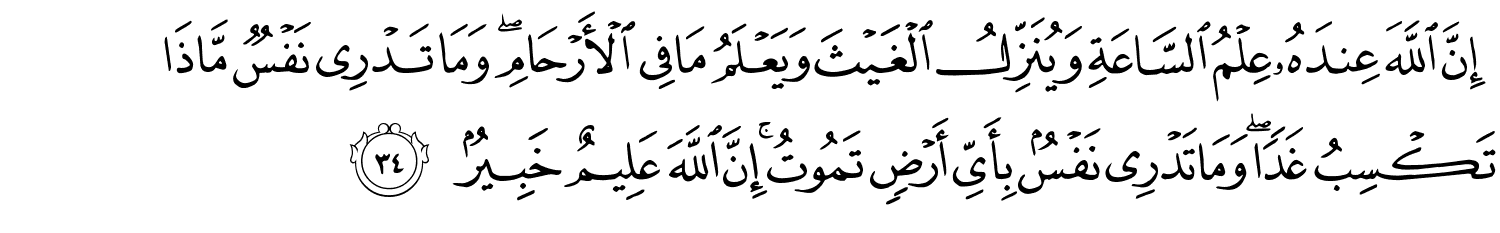 إِنَّ ٱللَّهَ عِندَهُۥ عِلْمُ ٱلسَّاعَةِ وَيُنَزِّلُ ٱلْغَيْثَ وَيَعْلَمُ مَا فِى ٱلْأَرْحَامِ ۖ وَمَا تَدْرِى نَفْسٌ مَّاذَا
تَكْسِبُ غَدًا ۖ وَمَا تَدْرِى نَفْسٌۢ بِأَىِّ أَرْضٍ تَمُوتُ ۚ إِنَّ ٱللَّهَ عَلِيمٌ خَبِيرٌۢ ٣٤